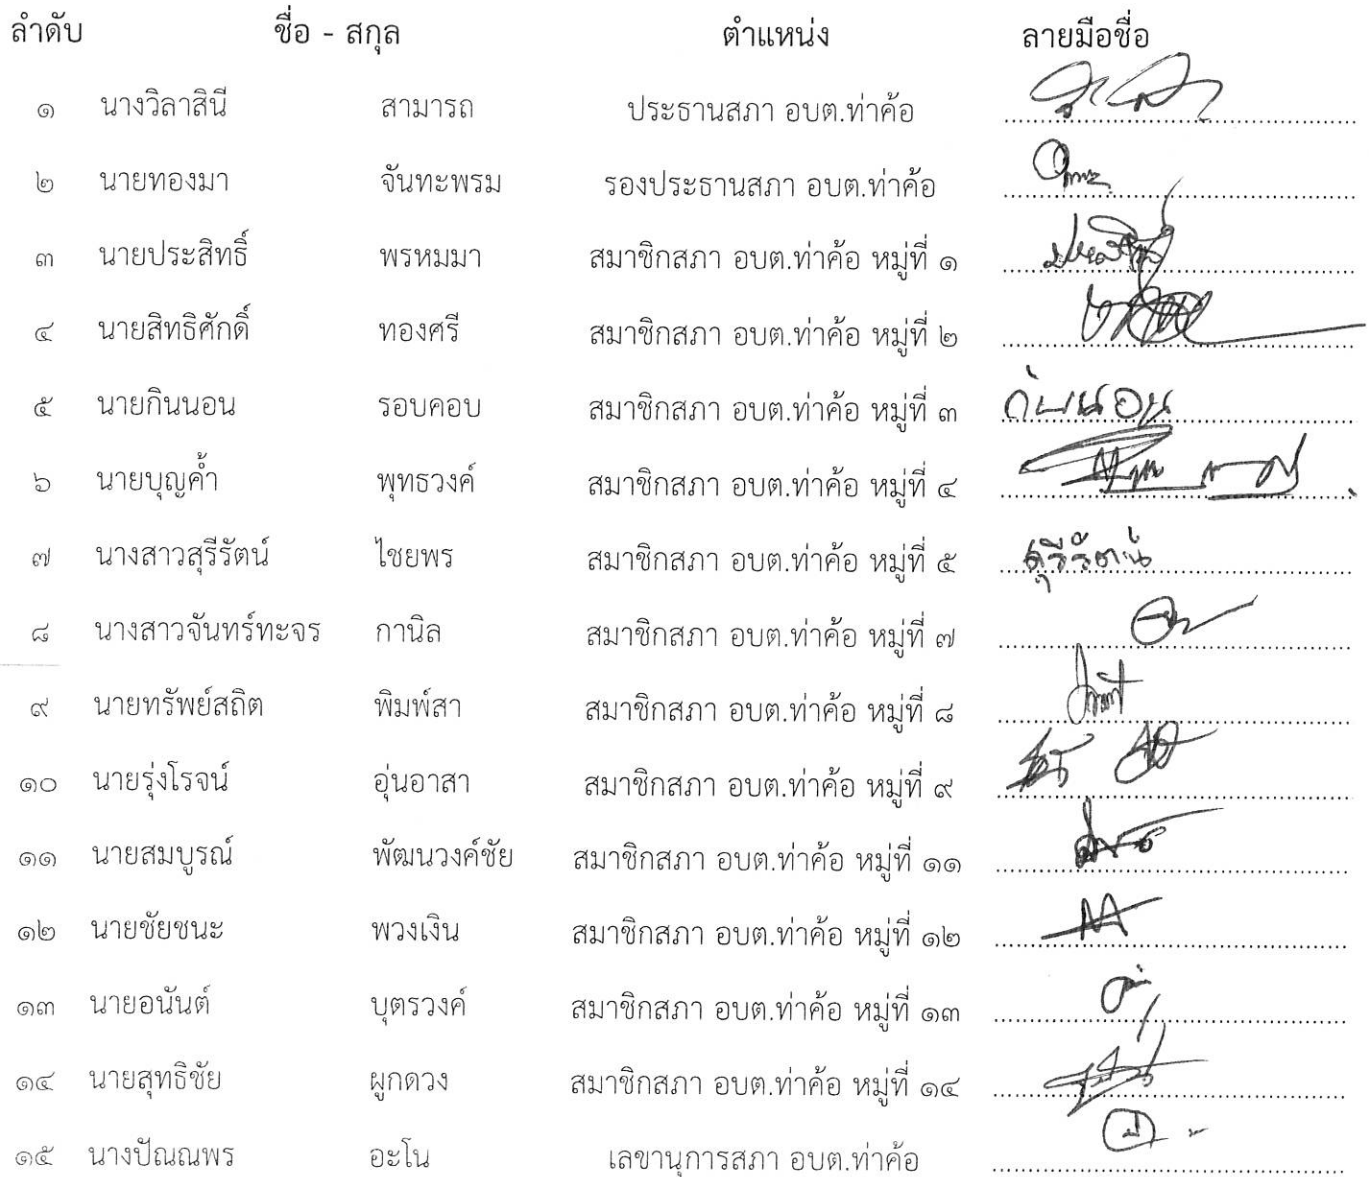 ลำดับ ชื่อ - สกุล ตำแหน่ง ลายมือชื่อ
๑ นางวิลาสินี สามารถ ประธานสภา อบต.ท่าค้อ
๒ นายทองมา จันทะพรม รองประธานสภา อบต.ท่าค้อ
๓ นายประสิทธิ์ พรหมมา สมาชิกสภา อบต.ท่าค้อ หมู่ที่ ๑
๔ นายสิทธิศักดิ์ ทองศรี สมาชิกสภา อบต.ท่าค้อ หมู่ที่ ๒
๕ นายกินนอน รอบคอบ สมาชิกสภา อบต.ท่าค้อ หมู่ที่ ๓ กินนอน
๖ นายบุญค้ำ พุทธวงค์ สมาชิกสภา อบต.ท่าค้อ หมู่ที่ ๔
๗ นางสาวสุรีรัตน์ ไชยพร สมาชิกสภา อบต.ท่าค้อ หมู่ที่ ๕ สุรีรัตน์
๘ นางสาวจันทร์ทะจร กานิล สมาชิกสภา อบต.ท่าค้อ หมู่ที่ ๗
๙ นายทรัพย์สถิต พิมพ์สา สมาชิกสภา อบต.ท่าค้อ หมู่ที่ ๘
๑๐ นายรุ่งโรจน์ อุ่นอาสา สมาชิกสภา อบต.ท่าค้อ หมู่ที่ ๙
๑๑ นายสมบูรณ์ พัฒนวงค์ชัย สมาชิกสภา อบต.ท่าค้อ หมู่ที่ ๑๑
๑๒ นายชัยชนะ พวงเงิน สมาชิกสภา อบต.ท่าค้อ หมู่ที่ ๑๒
๑๓ นายอนันต์ บุตรวงค์ สมาชิกสภา อบต.ท่าค้อ หมู่ที่ ๑๓
๑๔ นายสุทธิชัย ผูกดวง สมาชิกสภา อบต.ท่าค้อ หมู่ที่ ๑๔
๑๕ นางปัณณพร อะโน เลขานุการสภา อบต.ท่าค้อ